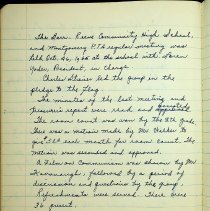 The Barr. Reeve Community High School,
and Montgomery P.T.A. regular meeting was
held Oct. 26, 1965 at the school with Loren
Yoder, President, in charge.
Charles Graber led the group in the
pledge to the flag.
The minutes of the last meeting and
treasurers report were read and accepted
approved.
The room count was won by the 8th Grade.
There was a motion made by Mr.
to give $5.00 each month for room count. The
motion was seconded and approved.
A film on Communism was shown by Mr.
Kavanaugh, followed by a period of
discussion and questions by the group.
Refreshments were served. There were
36 present.